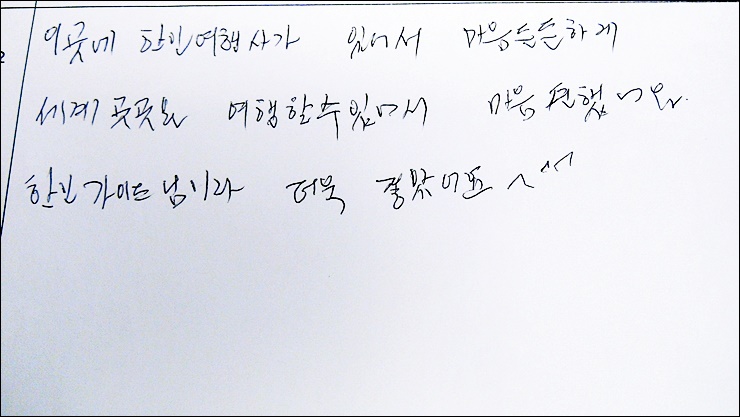 이곳에 한인여행사가 있어서 마음든든하게
세계 곳곳을 여행할수있어서 마음 편했어요.
한인 가이드님이라 더욱 좋았어요 ^^